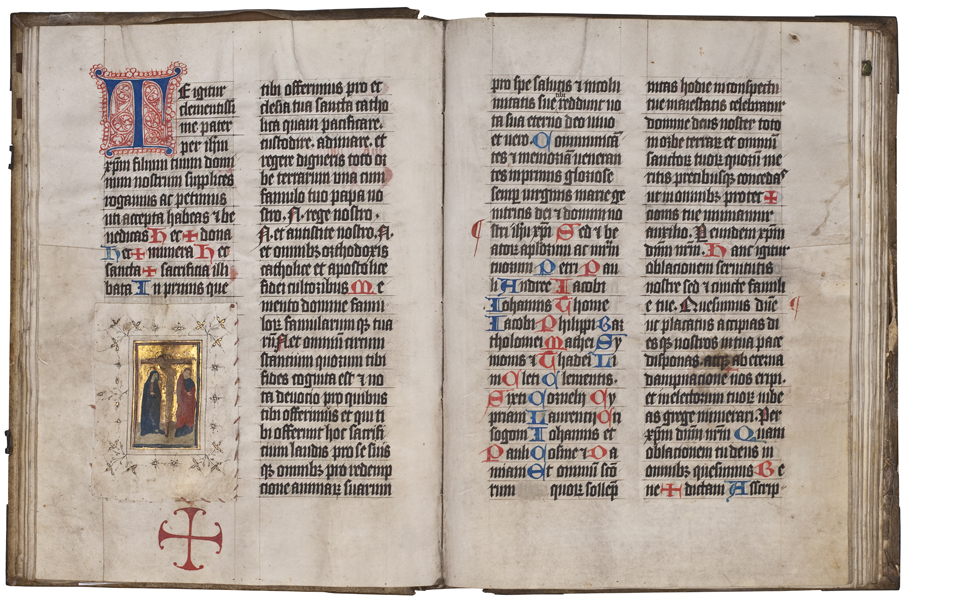 TE igitur
clementissi
me pater
per ihm
xpm filium tuum domi
num nostrum supplices
rogamus ac petimus
uti accepta habeas et be
nedicas H ec + dona
H ec + munera H ec
sancta + sacrificia illi
bata I n primis que
tibi offerimus pro ec
clesia tua sancta catho
lica quam pacificare.
custodire. adunare. et
regere digneris toto or
be terrarum una cum
famulo tuo papa no
stro. N. rege nostro.
N. et antistite nostro. N.
et omnibus orthodoxis
catholice et apostolice
fidei cultoribus M e
mento domine famu
lorum famularumque tua
rum N. et omnium circum
stantium quorum tibi
fides cognita est et no
ta devocio pro quibus
tibi offerimus vel qui ti
bi offerunt hoc sacrifi
cium laudis pro se suis
que omnibus pro redemp
cione animarum suarum
pro spe salutis et incolu
mitatis sue tibi reddunt uo
ta sua eterno deo uiuo
et uero. C ommunican
tes et memoriam ueneran
tes inprimis gloriose
semper uirginis marie ge
nitricis dei et domini no
stri ihu xpi S ed et be
atorum apostolorum ac martirum
tuorum P etri P au
li A ndree I acobi
I ohannis T home
I acobi P hilippi B ar
tholomei M athei S y
monis et T hadei L i
ni C leti C lementis.
S ixti C ornelii C y
priani L aurencii C ri
sogoni I ohannis et
P auli C osme et D a
miani E t omnium sanctorum
tuorum quorum sollempnitas
hodie in conspectu
tue maiestatis celebratur
domine deus noster toto
in orbe terrarum et omnium
sanctorum tuorum quorum me
ritis precibusque concedas
ut in omnibus protec +
cionis tue muniamur
auxilio. Per eundem xpm
dnm nrm. H anc igitur
oblacionem seruitutis
nostre sed et cuncte famili
e tue. Quesumus dne
ut placatus accipias di
esque nostros in tua pace
disponas. atque ab eterna
dampnacione nos eripi.
et in electorum tuorum iube
as grege numerari. Per
xpm dnm nrm Q uam
oblacionem tu deus in
omnibus quesumus B e
ne + dictam A sscrip